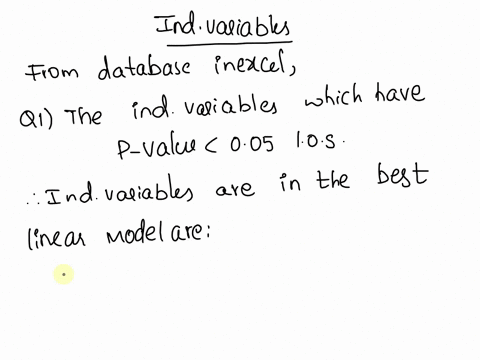 Ind.variables
From database inexcel,
Q1) The ind. variables which have
P-value < 0.05 l.o.s.
∴ Ind.variables are in the best
linear model are: